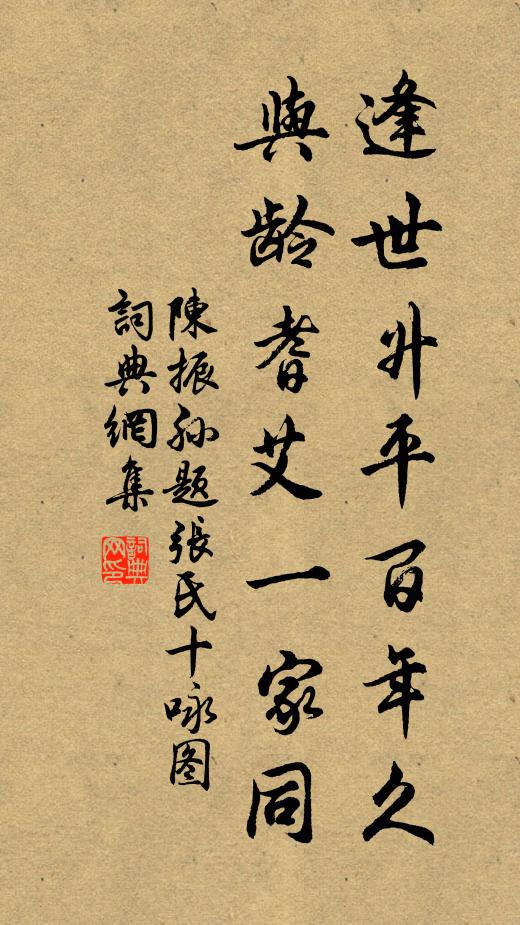 逢世升平百年久
與龄耆艾一家同
陳振孙题張氏十咏图
詞典網集
詞典网印